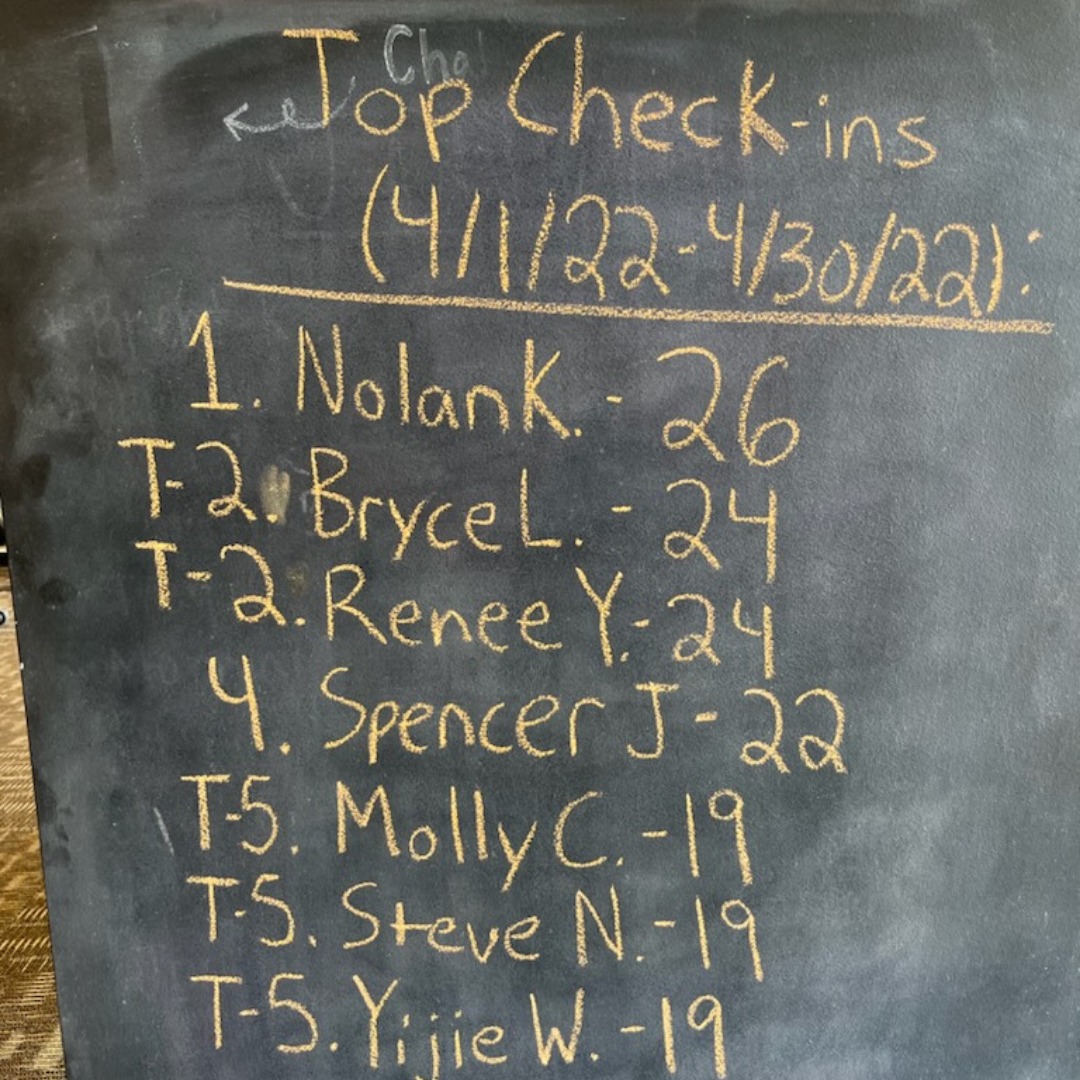 Top Check-ins
(4/1/22-4/30/22):
1. Nolan K. - 26
T-2. Bryce L. - 24
T-2. Renee Y. - 24
4. Spencer J - 22
T-5. Molly C. - 19
T-5. Steve N. - 19
T-5. Yijie W. - 19